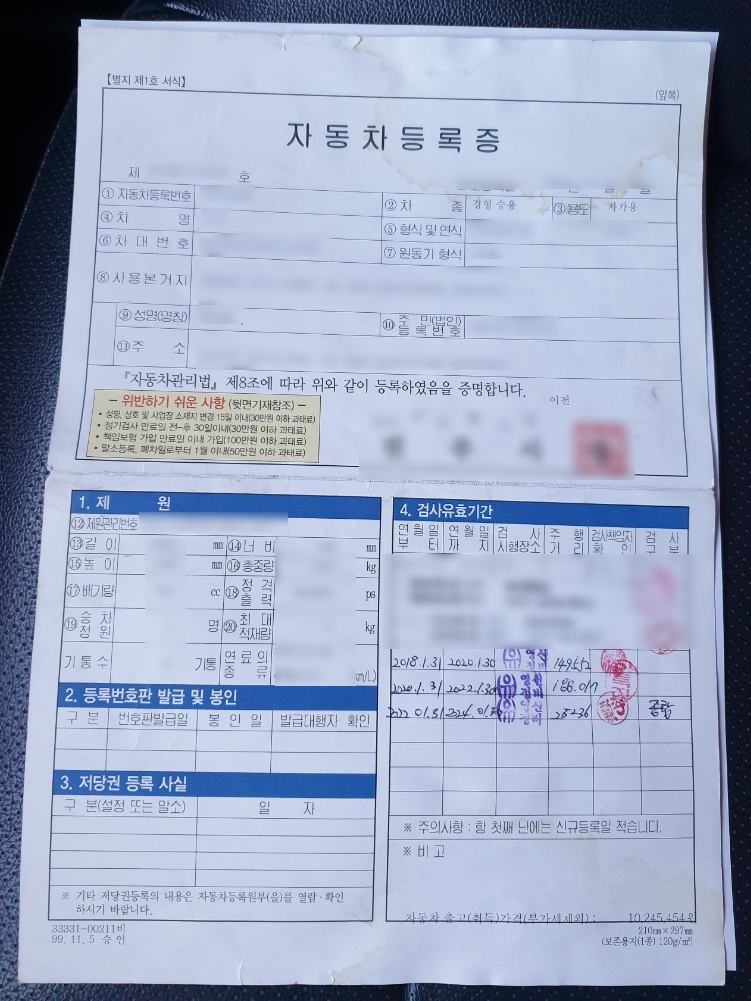 【별지 제1호 서식】
(앞쪽)
자동차등록증
제 호
① 자동차등록번호 ② 차 종 경형 승용 ③ 용도 자가용
④ 차 명 ⑤ 형식 및 연식
⑥ 차 대 번 호 ⑦ 원동기 형식
⑧ 사용본거지
⑨ 성명(명칭) ⑩ 주 민(법인) 등 록 번 호
⑪ 주 소
『자동차관리법』 제8조에 따라 위와 같이 등록하였음을 증명합니다.
이전
– 위반하기 쉬운 사항 (뒷면기재참조) –
• 성명, 상호 및 사업장 소재지 변경 15일 이내(30만원 이하 과태료)
• 정기검사 만료일 전–후 30일이내(30만원 이하 과태료)
• 책임보험 가입 만료일 이내 가입(100만원 이하 과태료)
• 말소등록, 폐차일로부터 1월 이내(50만원 이하 과태료)
시
1. 제 원
⑫ 제원관리번호
⑬ 길 이 mm ⑭ 너 비 mm
⑮ 높 이 mm ⑯ 총중량 kg
⑰ 배기량 cc ⑱ 정 격 출 력 ps
⑲ 승 차 정 원 명 ⑳ 최 대 적재량 kg
기 통 수 기통 연 료 의 종 류 km/L)
2. 등록번호판 발급 및 봉인
구 분 번호판발급일 봉 인 일 발급대행자 확인
3. 저당권 등록 사실
구 분(설정 또는 말소) 일 자
※ 기타 저당권등록의 내용은 자동차등록원부(을)를 열람·확인
하시기 바랍니다.
33331-00211비
99. 11. 5 승 인
4. 검사유효기간
연 월 일 부 터 연 월 일 까 지 검 사 시행장소 주 행 거 리 검사책임자 확 인 검 사 구 분
2018.1.31 2020.1.30 149512
2020.1.31 2022.1.30 186.017
2022.01.31 2024.01.30 종합
※ 주의사항 : 항 첫째 난에는 신규등록일 적습니다.
※ 비 고
자동차 출고(취득)가격(부가세제외) : 10,245,454원
210㎜×297㎜
(보존용지(1종) 120g/㎡)